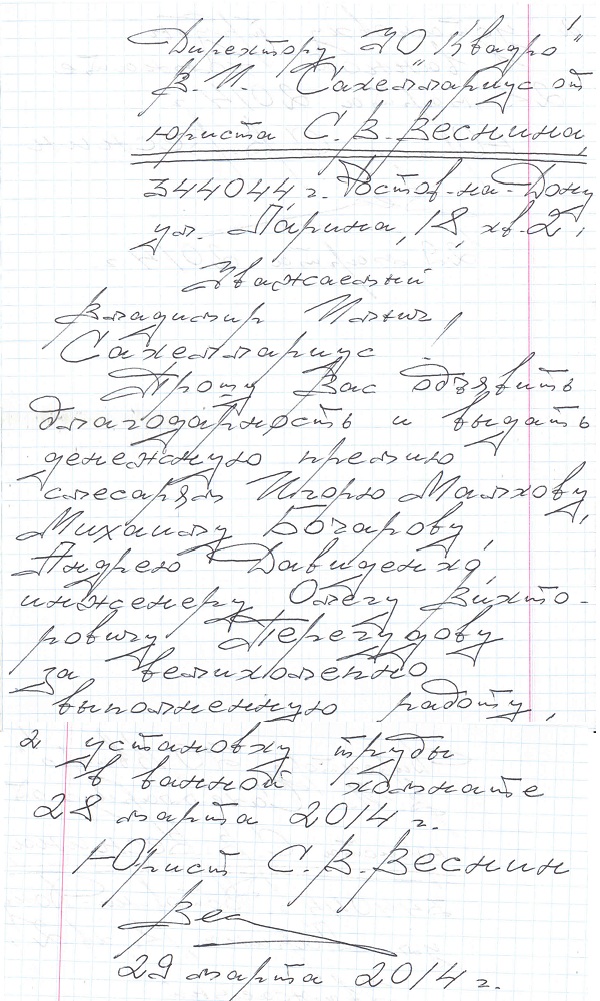 Директору ЗО "Квадро"
В. И. Сакеллариус от
юриста С. В. Веснина,
344044 г. Ростов-на-Дону
ул. Ларина, 18, кв. 2,
Уважаемый
Владимир Ильич,
Сакеллариус!
Прошу Вас объявить
благодарность и выдать
денежную премию
слесарям Игорю Малхову,
Михаилу Бочарову,
Андрею Давиденко,
инженеру Олегу Викто-
ровичу Перегудову
за великолепно
выполненную работу,
2 установку трубы
в ванной комнате
28 марта 2014 г.
Юрист С. В. Веснин
Вес
29 марта 2014 г.